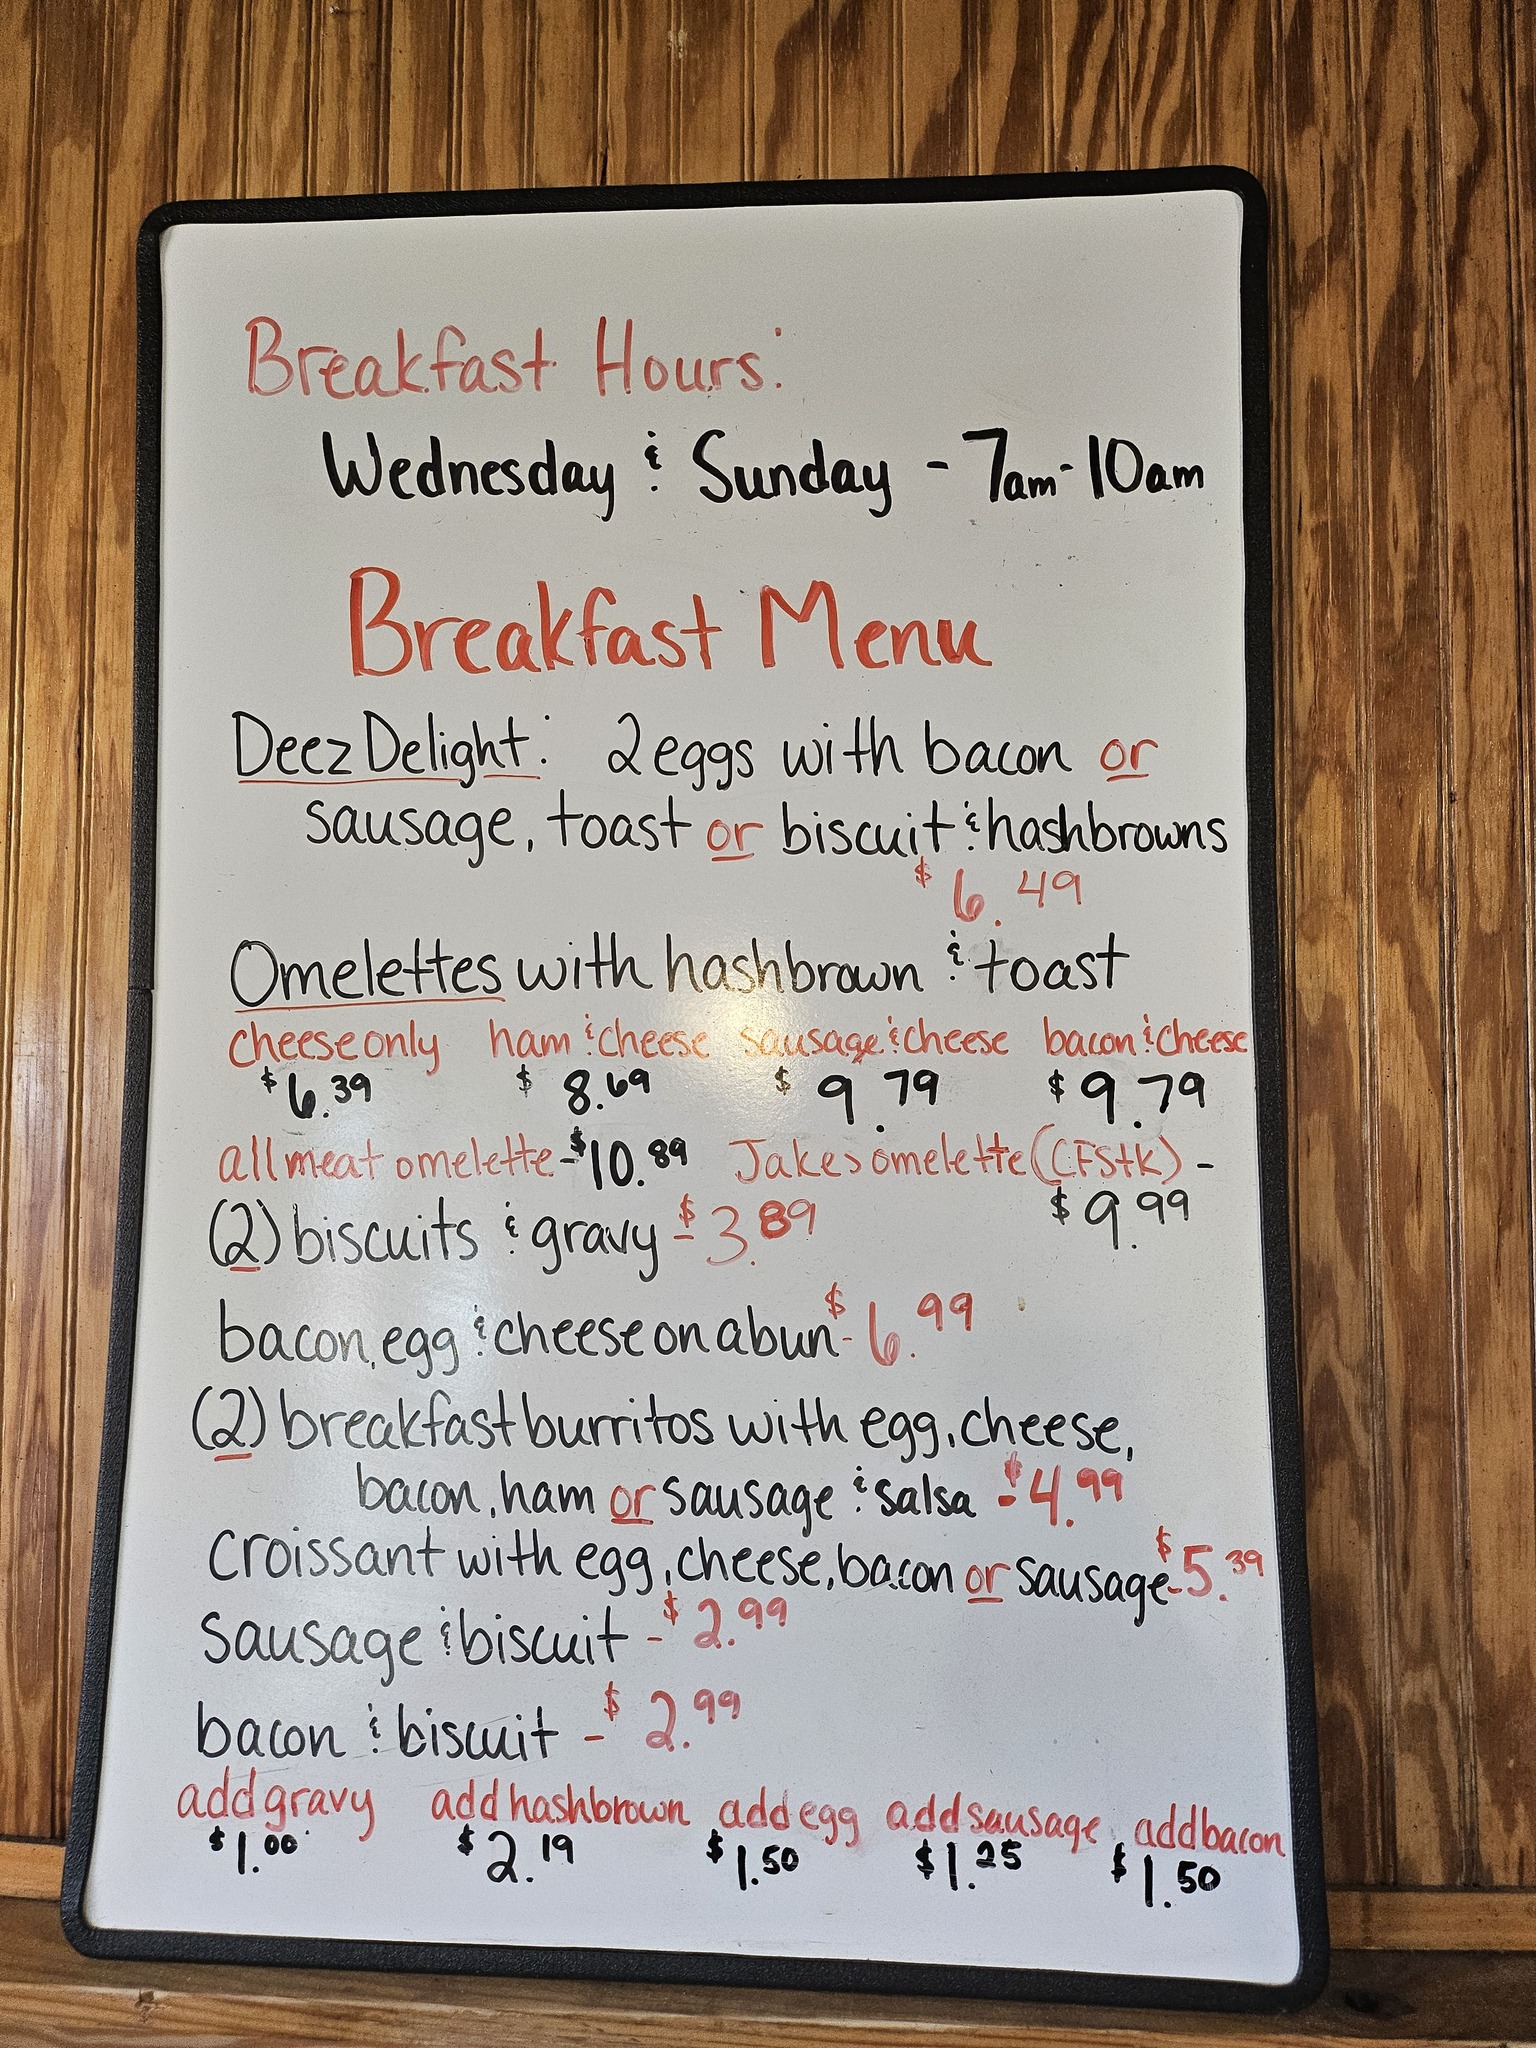 Breakfast Hours:
Wednesday & Sunday - 7am-10am
Breakfast Menu
Deez Delight: 2 eggs with bacon or
sausage, toast or biscuit & hashbrowns
$6.49
Omelettes with hashbrown & toast
cheese only ham & cheese sausage & cheese bacon & cheese
$6.39 $8.69 $9.79 $9.79
all meat omelette - $10.89 Jakes omelette (CFStK) -
$9.99
(2) biscuits & gravy - $3.89
bacon, egg & cheese on a bun - $6.99
(2) breakfast burritos with egg, cheese,
bacon, ham or sausage & salsa - $4.99
croissant with egg, cheese, bacon or sausage - $5.39
sausage & biscuit - $2.99
bacon & biscuit - $2.99
add gravy add hashbrown add egg add sausage add bacon
$1.00 $2.19 $1.50 $1.25 $1.50